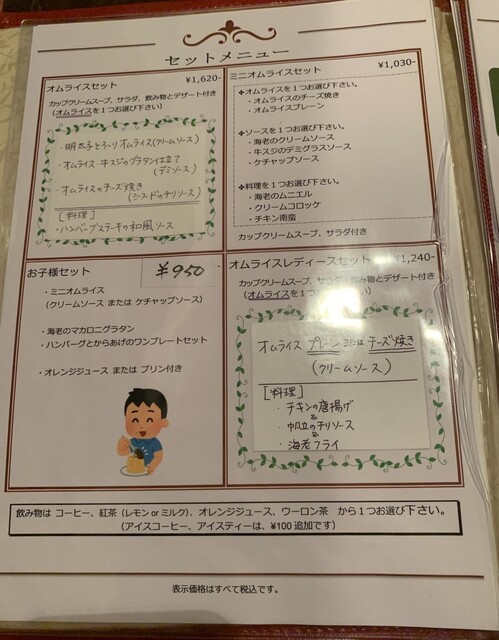 セットメニュー
オムライスセット ¥1,620-
カップクリームスープ、サラダ、飲み物とデザート付き
(オムライスを１つお選び下さい)
・明太子とろ〜りオムライス(クリームソース)
・オムライス 牛スジのグラタン仕立て
(デミソース)
・オムライスのチーズ焼き
(シーフードのチリソース)
[料理]
・ハンバーグステーキの和風ソース
ミニオムライスセット ¥1,030-
✤オムライスを１つお選び下さい。
・オムライスのチーズ焼き
・オムライスプレーン
✤ソースを１つお選び下さい。
・海老のクリームソース
・牛スジのデミグラスソース
・ケチャップソース
✤料理を１つお選び下さい。
・海老のムニエル
・クリームコロッケ
・チキン南蛮
カップクリームスープ、サラダ付き
お子様セット ¥950-
・ミニオムライス
(クリームソース または ケチャップソース)
・海老のマカロニグラタン
・ハンバーグとからあげのワンプレートセット
・オレンジジュース または プリン付き
オムライスレディースセット ¥1,240-
カップクリームスープ、サラダ、飲み物とデザート付き
(オムライスを１つお選び下さい)
オムライス プレーン または チーズ焼き
(クリームソース)
[料理]
・チキンの唐揚げ
&
・帆立のチリソース
&
・海老フライ
飲み物は コーヒー、紅茶（レモン or ミルク）、オレンジジュース、ウーロン茶　から１つお選び下さい。
（アイスコーヒー、アイスティーは、¥100 追加です）
表示価格はすべて税込です。